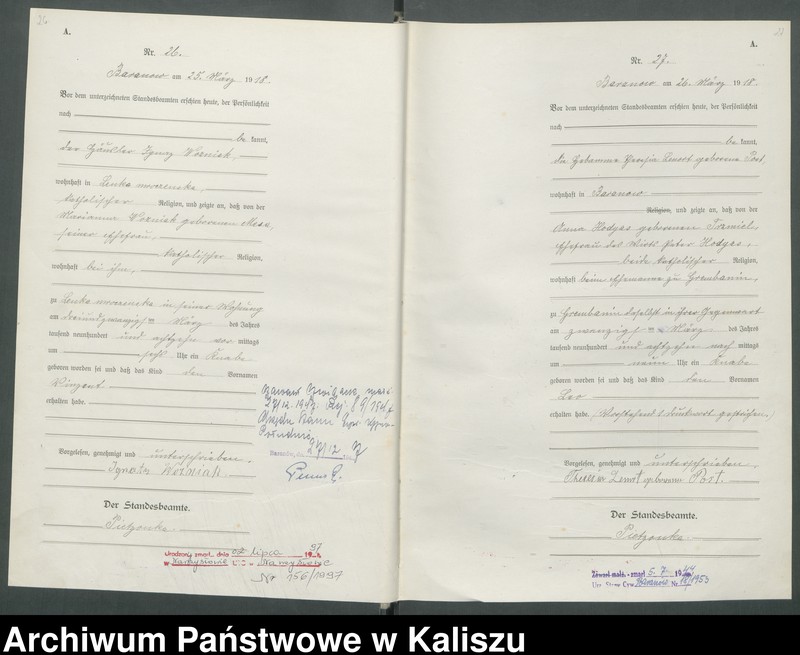 26
A.
Nr. 26.
Baranow am 25. März 1918.
Vor dem unterzeichneten Standesbeamten erschien heute, der Persönlichkeit
nach
be kannt,
der Häusler Ignaz Wozniak,
wohnhaft in Lenka mroczencka,
katholischer Religion, und zeigte an, daß von der
Marianna Wozniak geborenen
seiner Ehefrau,
katholischer Religion,
wohnhaft bei ihm,
zu Lenka mroczencka in seiner Wohnung
am dreiundzwanzigsten März des Jahres
tausend neunhundert und achtzehn vor mittags
um Uhr ein Knabe
geboren worden sei und daß das Kind den Vornamen
Vinzent
erhalten habe.
27/12
Vorgelesen, genehmigt und unterschrieben.
Ignatz Wozniak.
Der Standesbeamte.
Pietzonka.
Urodzony zmarł dnia lipca 1997
w Namysłowie Namysłowie
Nr 156/1997
27
A.
Nr. 27.
Baranow am 26. März 1918.
Vor dem unterzeichneten Standesbeamten erschien heute, der Persönlichkeit
nach
be kannt,
die Hebamme geborene Post,
wohnhaft in Baranow
Religion, und zeigte an, daß von der
Anna Hodyas geborenen
Ehefrau des Wirts Peter Hodyas,
beide katholischer Religion,
wohnhaft beim Ehemanne zu Grembanin,
zu Grembanin daselbst in ihrer Gegenwart
am zwanzigsten März des Jahres
tausend neunhundert und achtzehn nach mittags
um neun Uhr ein Knabe
geboren worden sei und daß das Kind den Vornamen
Leo
erhalten habe. (Vorstehend 1 Druckwort gestrichen.)
Vorgelesen, genehmigt und unterschrieben.
geborene Post.
Der Standesbeamte.
Pietzonka.
zmarł 5. 7. 1944
Baranow Nr /1953
Archiwum Państwowe w Kaliszu